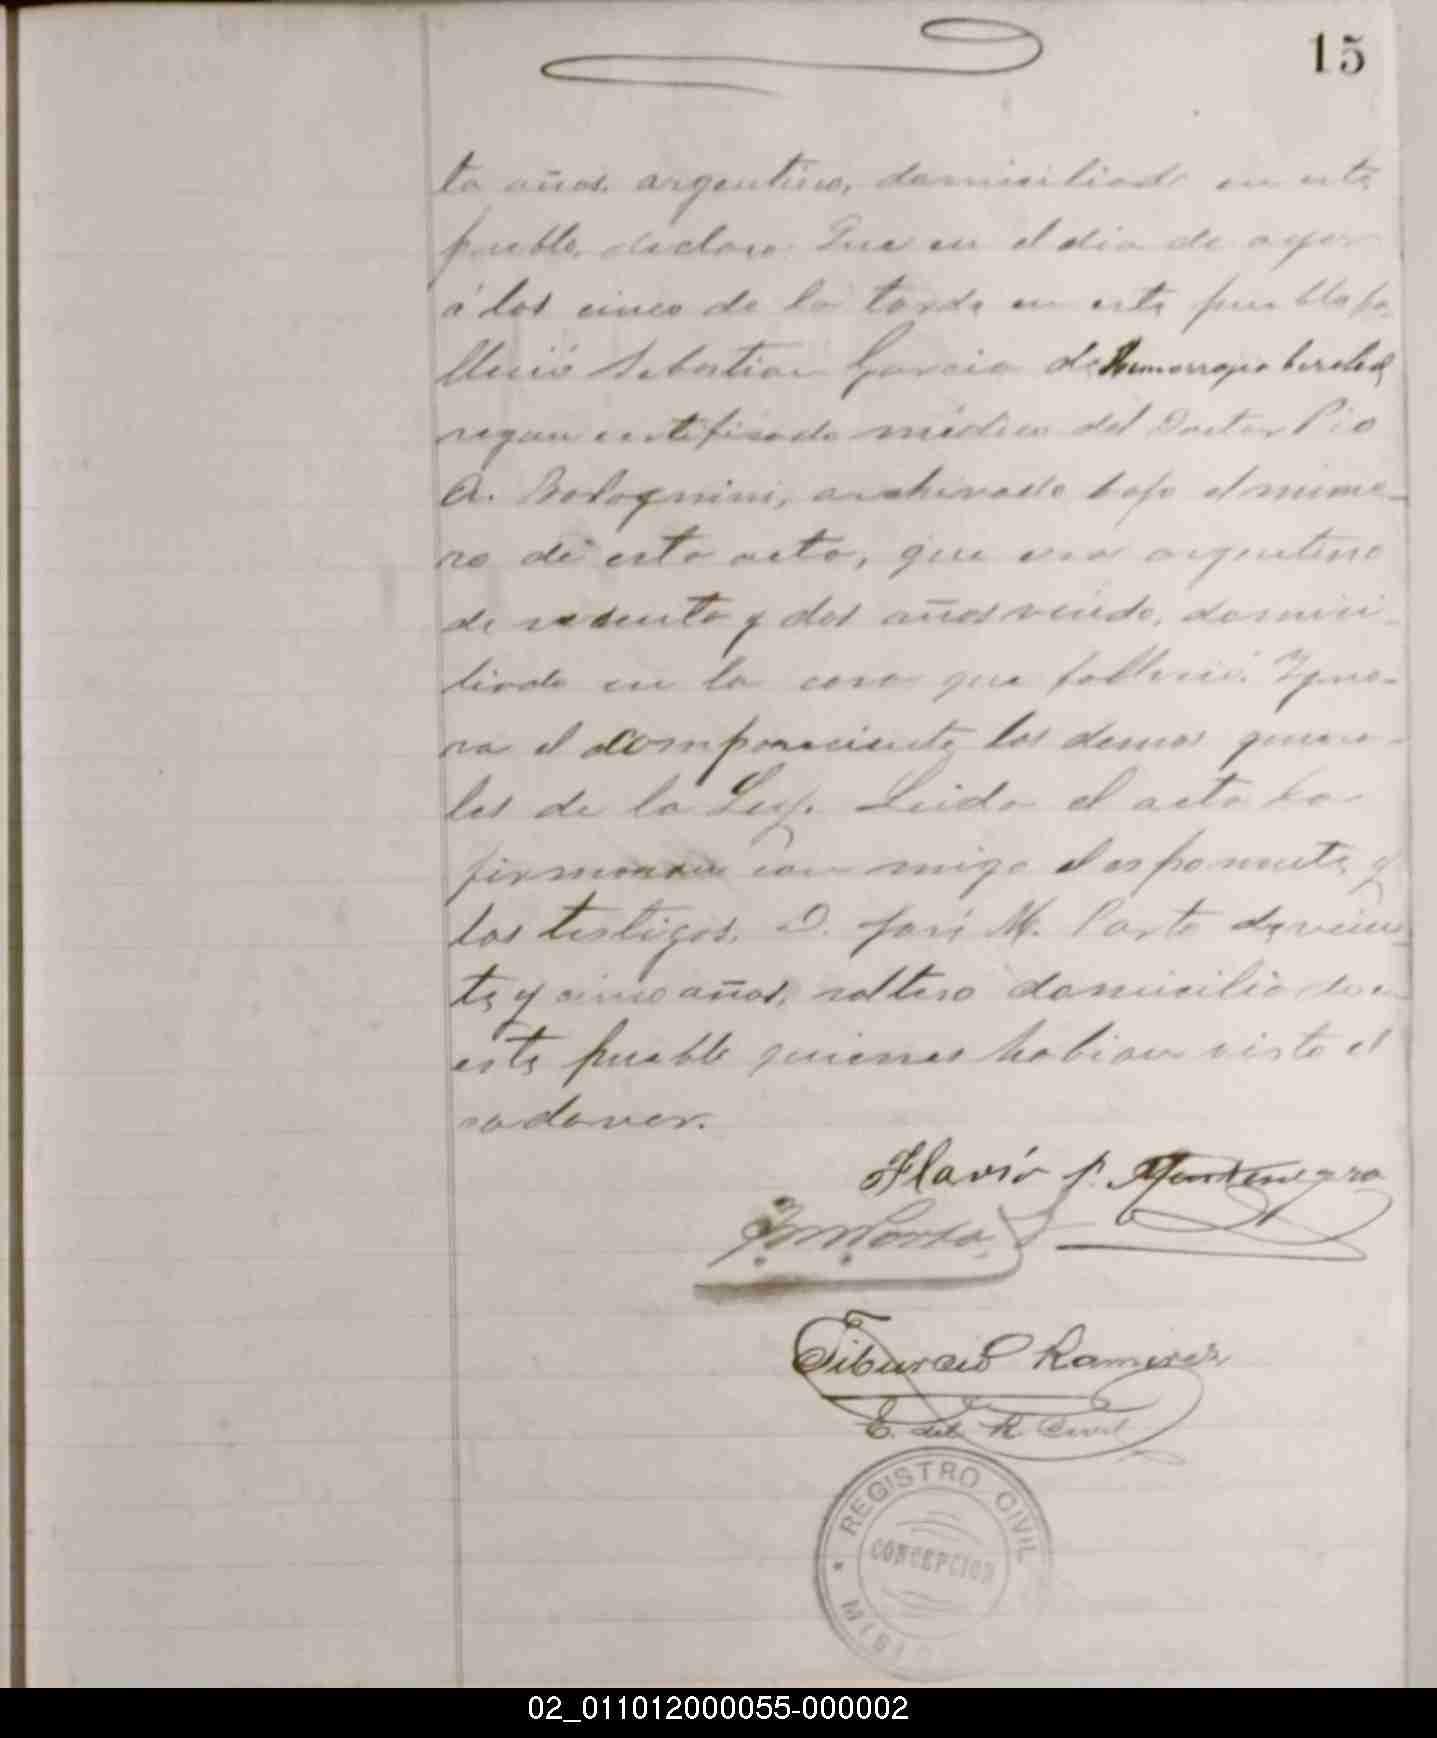 15
ta años, argentino, domiciliado en este
pueblo, declaro: Que en el dia de ayer
á las cinco de la tarde en este pueblo fa-
lleció Sebastian Garcia de Hemorragia
segun certificado médico del Doctor Pio
A. Bolognini, archivado bajo el nume-
ro de esta acta, que era argentino
de sesenta y dos años viudo, domici-
liado en la casa que falleció. Ygno-
ra el compareciente las demas genera-
les de la Ley. Leida el acta la
firmaron con migo el esponente y
los testigos, D. José M. Porta de vein-
te y cinco años, soltero domiciliado en
este pueblo quienes habian visto el
cadaver.
Flavió F. Montenegro
JM Porta
Tiburcio Ramirez
E. del R. Civil
REGISTRO CIVIL
CONCEPCION
02_011012000055-000002